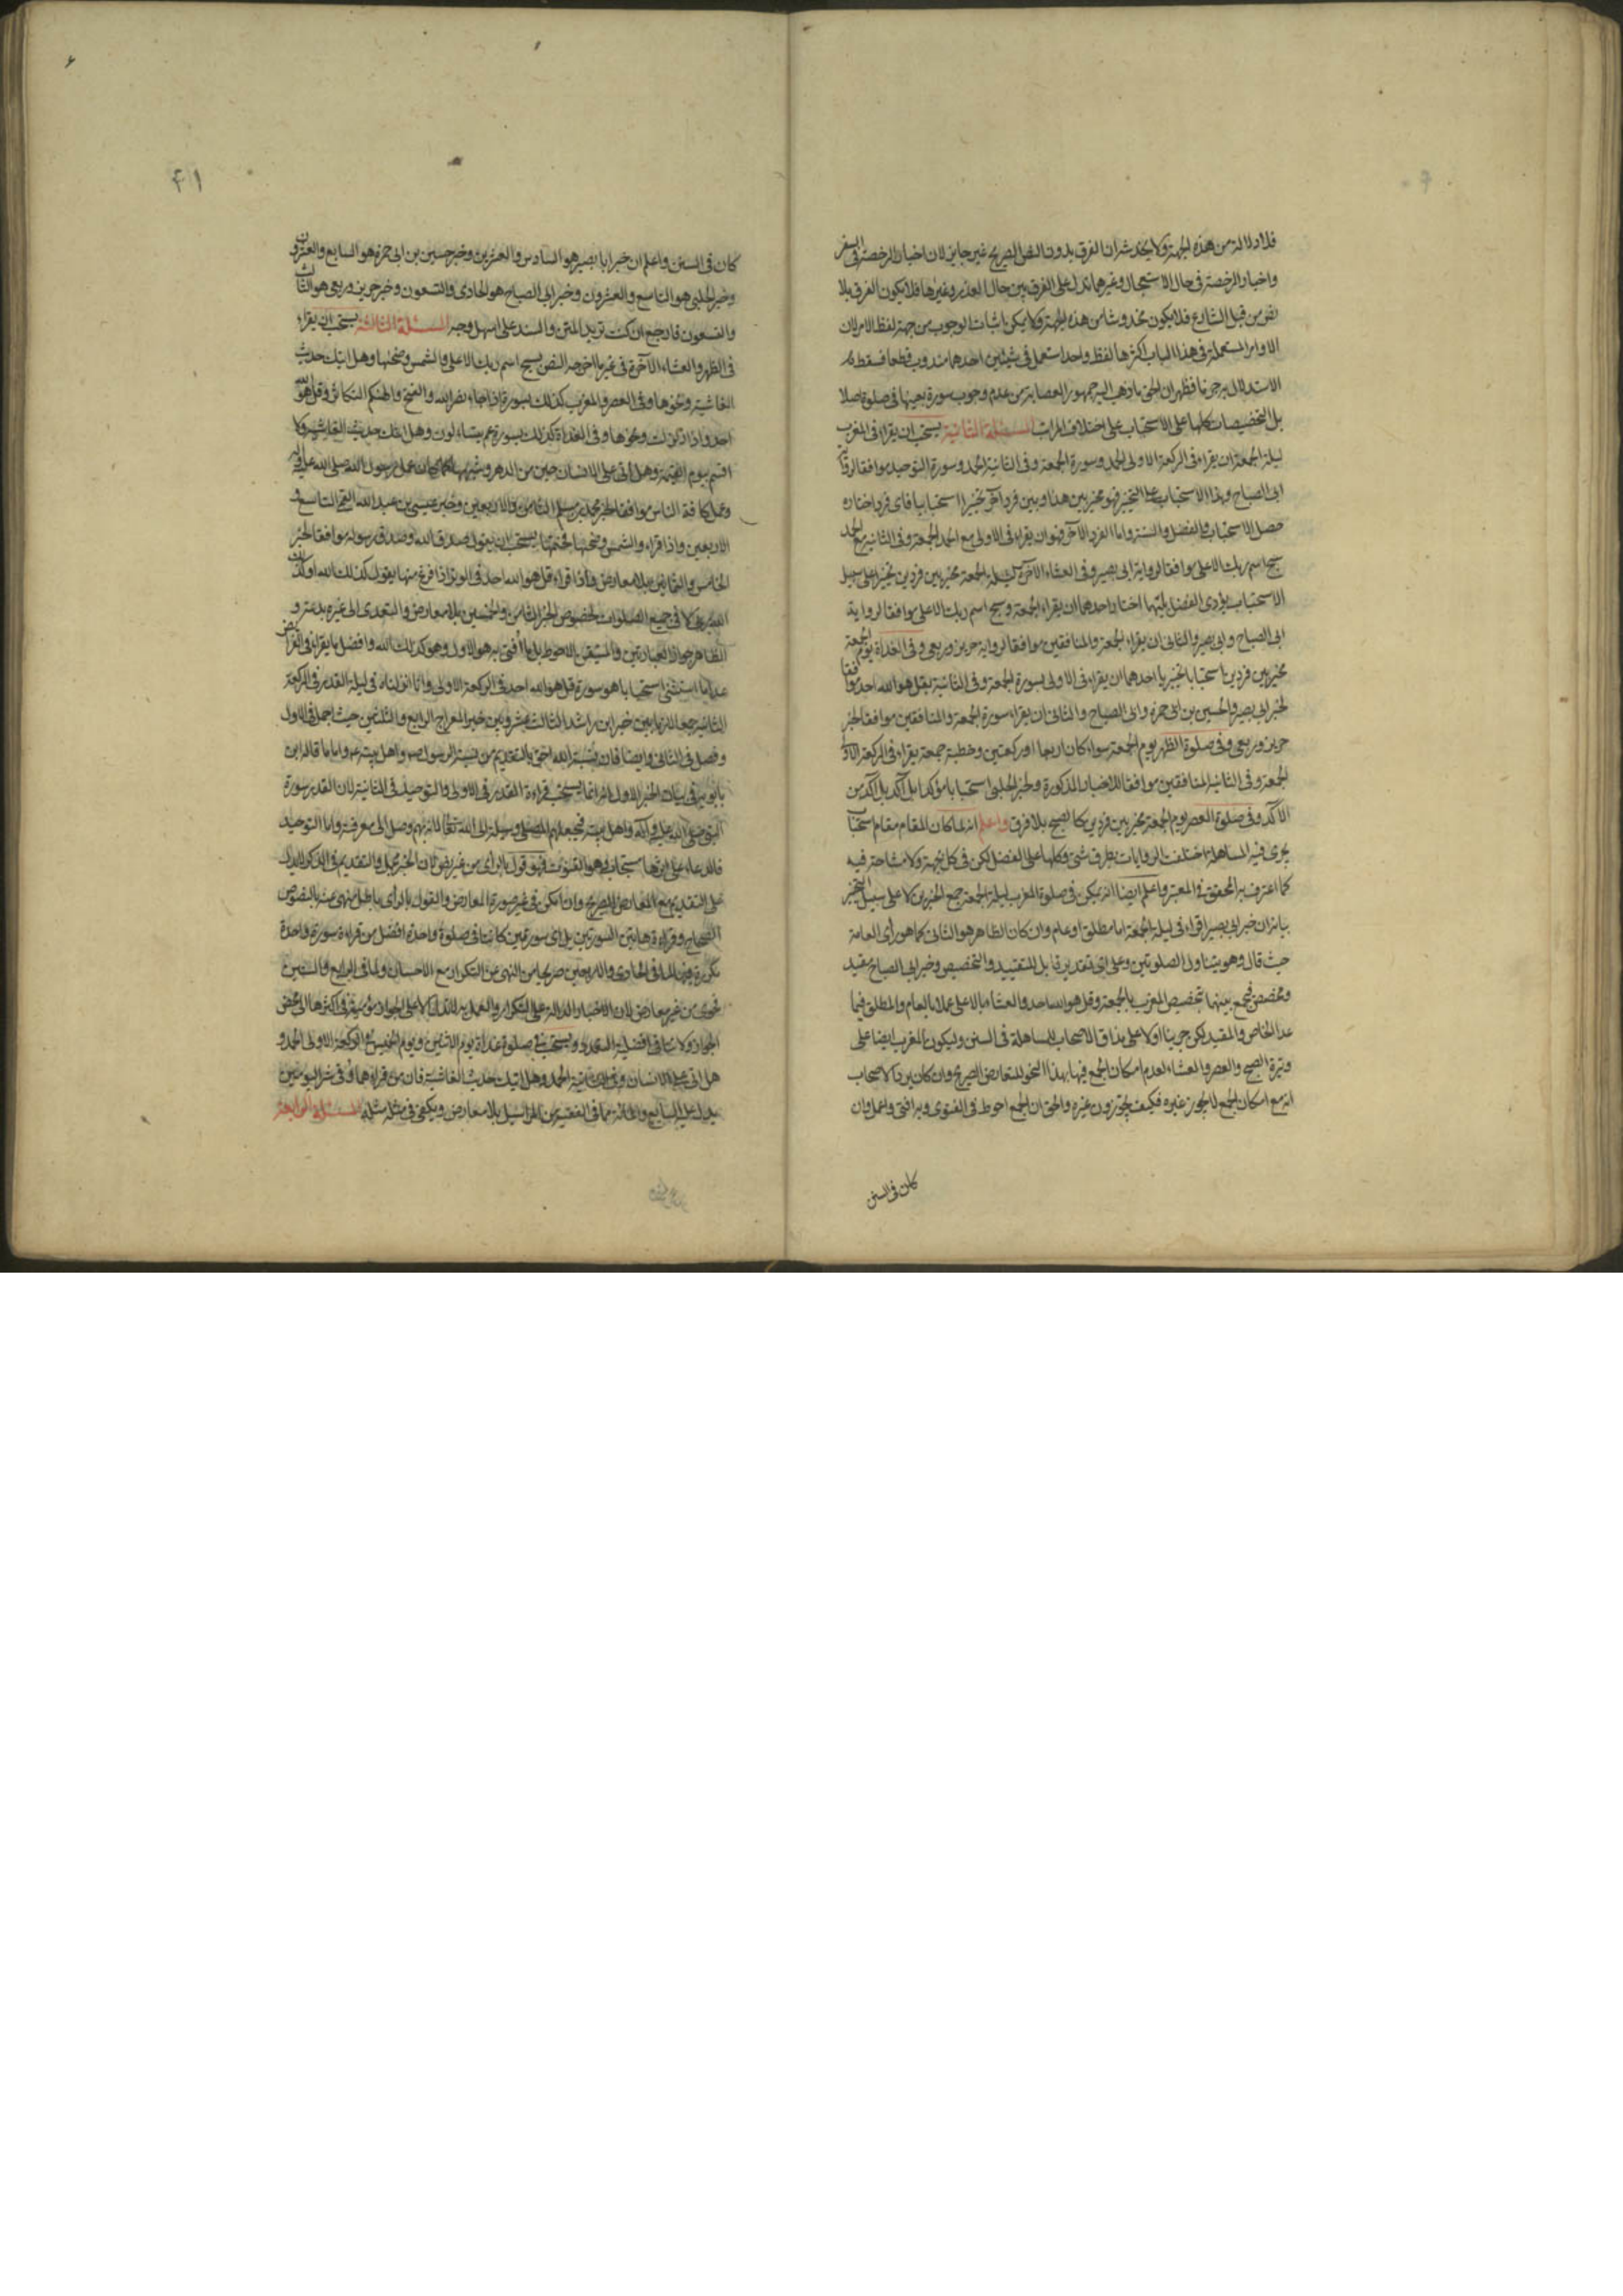 فلا دلالة من هذه الجهة ولا يخدشه ان الفرق بدون النص الصريح غير جايز لان اخبار الرخصة فى السفر
واخبار الرخصة فى حال الاستعجال وغيرها تدل على الفرق بين حال العذر وغيرها فلا يكون الفرق بلا
نص من قبل الشارع فلا يكون مخدوشا من هذه الجهة ولا يمكن اثبات الوجوب من جهة لفظ الامر لان
الاوامر المستعملة فى هذا الباب اكثرها لفظ واحد استعمل فى شيئين احدهما مندوب قطعا فسقط
الاستدلال به جزما فظهر ان الحق ما ذهب اليه جمهور العصابة من عدم وجوب سورة بعينها فى صلوة اصلا
بل التخصيصات كلها على الاستحباب على اختلاف المراتب المسئلة الثانية يستحب ان يقراء فى المغرب
ليلة الجمعة ان يقراء فى الركعة الاولى الحمد وسورة الجمعة وفى الثانية الحمد وسورة التوحيد موافقا لرواية
ابى الصباح وهذا الاستحباب على التخيير فهو مخير بين هذا وبين فرد آخر تخييرا استحبابيا فاى فرد اختاره
حصل الاستحباب والفضل والسنة واما الفرد الآخر فهو ان يقراء فى الاولى مع الحمد الجمعة وفى الثانية مع الحمد
سبح اسم ربك الاعلى موافقا لرواية ابى بصير وفى العشاء الآخرة ليلة الجمعة مخير بين فردين تخييرا على سبيل
الاستحباب يؤدى الفضل بايهما اختار احدهما ان يقراء الجمعة وسبح اسم ربك الاعلى موافقا لرواية
ابى الصباح وابى بصير والثانى ان يقراء الجمعة والمنافقين موافقا لرواية حريز وربعى وفى الغداة يوم الجمعة
مخير بين فردين استحبابا تخييريا احدهما ان يقراء فى الاولى بسورة الجمعة وفى الثانية بقل هو الله احد موافقا
لخبر ابى بصير والحسين بن ابى حمزة وابى الصباح والثانى ان يقراء سورة الجمعة والمنافقين موافقا لخبر
حريز وربعى وفى صلوة الظهر يوم الجمعة سواء كان اربعا او ركعتين وخطبة جمعة يقراء فى الركعة الاولى
الجمعة وفى الثانية المنافقين موافقا للاخبار المذكورة ولخبر الحلبى استحبابا مؤكدا بل آكد بل آكد من
الآكد وفى صلوة العصر يوم الجمعة مخير بين فردين كالصبح بلا فرق واعلم انه لما كان المقام مقام استحباب
يجرى فيه المساهلة اختلف الروايات بطرق شتى وكلها على الفضل لكن فى كل جهة ولا مشاحة فيه
كما اعترف به المحقق فى المعتبر واعلم ايضا انه يمكن فى صلوة المغرب ليلة الجمعة جمع الخبرين لا على سبيل التخيير
بيانه ان خبر ابى بصير اقراء فى ليلة الجمعة اما مطلق او عام وان كان الظاهر هو الثانى كما هو رأى العامة
حيث قال وهو يتناول الصلوتين وعلى اى تقدير قابل للتقييد والتخصيص وخبر ابى الصباح مقيد
ومخصص فجمع بينهما بتخصيص المغرب بالجمعة وقل هو الله احد والعشا بالاعلى عملا بالعام والمطلق فيما
عدا الخاص والمقيد لكن جرينا اولا على مذاق الاصحاب للمساهلة فى السنن وليكون المغرب ايضا على
وتيرة الصبح والعصر والعشاء لعدم امكان الجمع فيها بهذا النحو للتعارض الصريح وان كان يرد الاصحاب
انه مع امكان الجمع لا يجوز غيره فكيف يجوزون غيره والحق ان الجمع احوط فى الفتوى وبه افتى واعمل وان
كان فى السنن
۴۱
كان فى السنن واعلم ان خبر ابا بصير هو السادس والعشرين وخبر حسين بن ابى حمزة هو السابع والعشرون
وخبر الحلبى هو التاسع والعشرون وخبر ابى الصباح هو الحادى والتسعون وخبر حريز وربعى هو الثالث
والتسعون فارجع ان كنت تريد المتن والسند على اسهل وجه المسئلة الثالثة يستحب ان يقراء
فى الظهر والعشاء الآخرة فى غير ما اخرجه النص بسبح اسم ربك الاعلى والشمس وضحيها وهل اتيك حديث
الغاشية ونحوها وفى العصر والمغرب كذلك بسورة اذا جاء نصر الله والفتح والهيكم التكاثر وقل هو الله
احد واذا زلزلت ونحوها وفى الغداة كذلك بسورة عم يتساءلون وهل اتيك حديث الغاشية ولا
اقسم بيوم القيمة وهل اتى على الانسان حين من الدهر وشبهها كان عمل رسول الله صلى الله عليه وآله
وعمل كافة الناس موافقا لخبر محمد بن مسلم الثامن والاربعين وخبر عيسى بن عبد الله القمى التاسع و
الاربعين واذا قراء والشمس وضحيها فختمها يستحب ان يقول صدق الله وصدق رسوله موافقا لخبر
الخامس والثمانين بلا معارض واذا قراء قل هو الله احد فى الوتر اذا فرغ منها يقول كذلك الله او كذلك
الله ربى لا فى جميع الصلوات لخصوص الخبر الثامن والخمسين بلا معارض والتعدى الى غيره بدعة و
الظاهر جواز العبارتين والمتيقن بالاحوط بل ما افتى به هو الاول وهو كذلك الله وافضل ما يقراء فى الفرائض
عدا ما استثنى استحبابا هو سورة قل هو الله احد فى الركعة الاولى وانا انزلناه فى ليلة القدر فى الركعة
الثانية جمعا بين خبر ابن راشد الثالث عشر وبين خبر المعراج الرابع والثلثين حيث اجمل فى الاول
وفصل فى الثانى وايضا فان نسبة الله احق بالتقديم من نسبة الرسول ص واهل بيته ع واما ما قاله ابن
بابويه فى بيان الخبر الاول انه انما يستحب قراءة القدر فى الاولى والتوحيد فى الثانية لان القدر سورة
النبى صلى الله عليه وآله واهل بيته فيجعلهم المصلى وسيلة الى الله تعالى لانه بهم وصل الى معرفته واما التوحيد
فالدعاء على اثرها مستجاب وهو القنوت فهو قول بالرأى من غير نص لان الخبر مجمل والتقديم فى الذكر لا يدل
على التقديم مع المعارض الصريح وان امكن فى غير صورة المعارض والقول بالرأى باطل منهى عنه بالنصوص
الصحاح وقراءة هاتين السورتين بل اى سورتين كانتا فى صلوة واحدة افضل من قراءة سورة واحدة
مكررة فيهما لما فى الحادى والاربعين صريحا من النهى عن التكرار مع الاحسان ولما فى الرابع والستين
فحوى من غير معارض لان الاخبار الدالة على التكرار والعمل به لا تدل الا على الجواز
الجواز ولا ينافى افضلية التعدد ويستحب فى صلوة غداة يوم الاثنين ويوم الخميس فى الركعة الاولى الحمد و
هل اتى على الانسان وفى الثانية الحمد وهل اتيك حديث الغاشية فان من قراءهما وقى شر اليومين
يدل عليه السابع والمائة مما فى الفقيه من المراسيل بلا معارض ويكفى فى مثله مثله المسئلة الرابعة